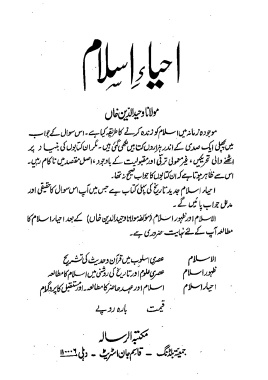 احیاء اسلام
مولانا وحید الدین خاں
موجودہ زمانہ میں اسلام کو زندہ کرنے کا طریقہ کیا ہے۔ اس سوال کے جواب
میں پچھلی ایک صدی کے اندر ہزاروں کتابیں لکھی گئی ہیں۔ مگر ان کتابوں کی بنیاد پر
اٹھنے والی تحریکیں، غیر معمولی ترقی اور مقبولیت کے باوجود، اصل مقصد میں ناکام رہیں۔ اس
سے ظاہر ہوتا ہے کہ ان کتابوں کا جواب صحیح نہ تھا۔
احیاء اسلام جدید تاریخ کی پہلی کتاب ہے جس میں آپ اس سوال کا حقیقی اور
مدلل جواب پائیں گے۔
الاسلام اور ظہور اسلام (مؤلفہ مولانا وحید الدین خاں) کے بعد احیاء اسلام کا
مطالعہ آپ کے لئے نہایت ضروری ہے۔
الاسلام عصری اسلوب میں قرآن و حدیث کی تشریح
ظہور اسلام عصری علوم اور تاریخ کی روشنی میں اسلام کا مطالعہ
احیاء اسلام اسلام اور عہد حاضر کا مطالعہ۔ اور مستقبل کا پروگرام
قیمت بارہ روپے
مکتبہ الرسالہ
جمعیۃ بلڈنگ - قاسم جان اسٹریٹ - دہلی ۱۱۰۰۰۶